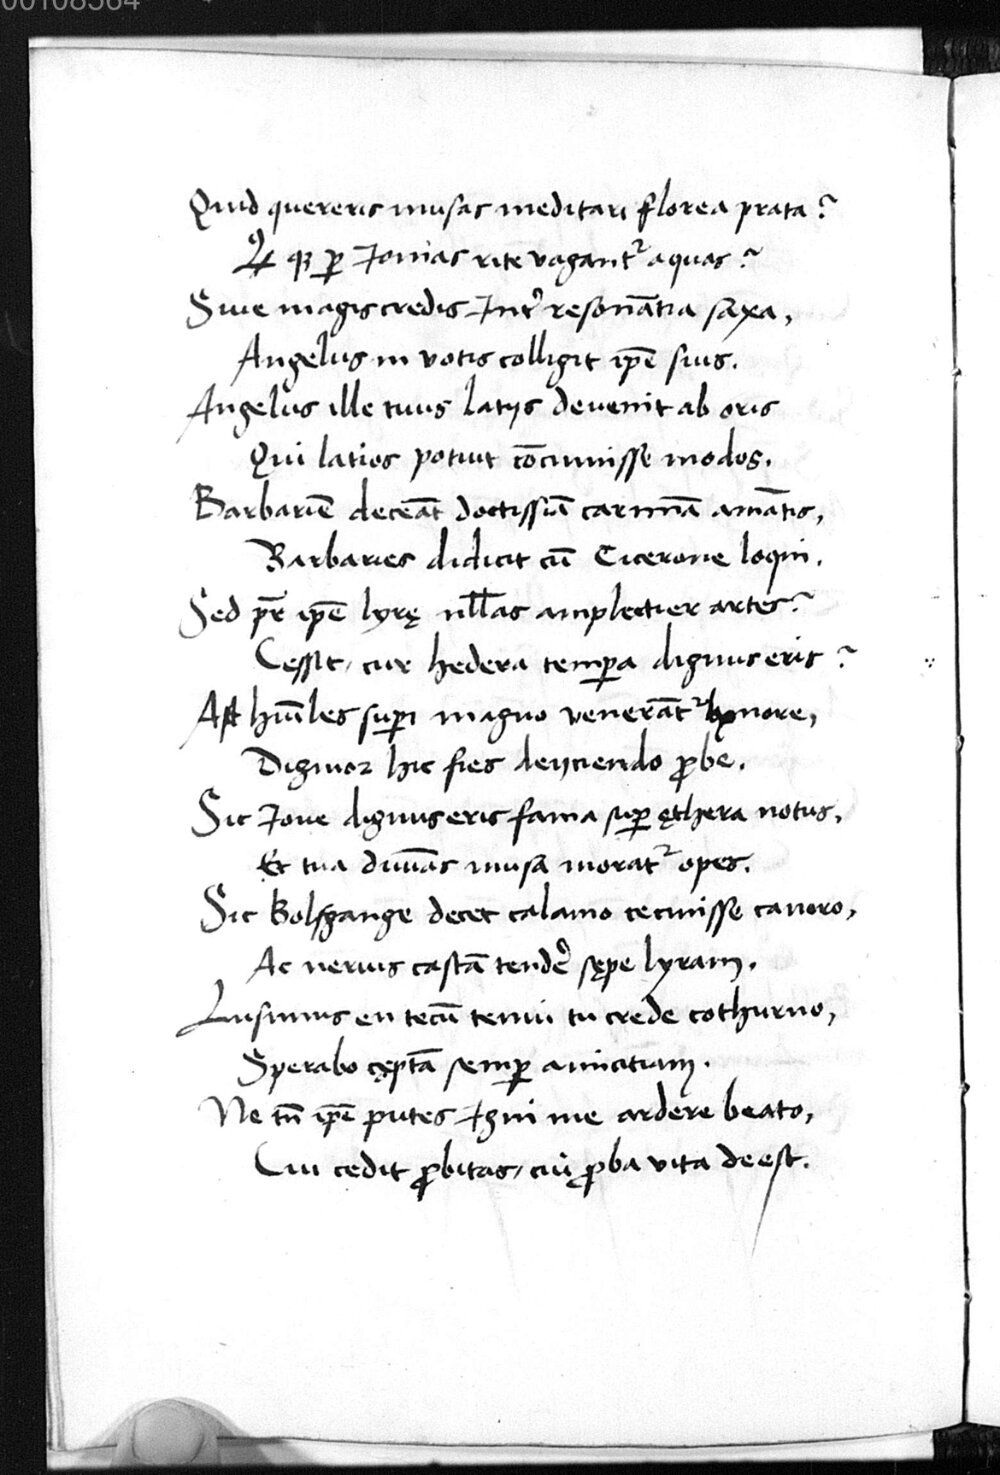 00108564
Quid quereris musas meditari florea prata?
qꝫ ꝑ Ionias rite vagantᷣ aquas?
Siue magis credis Int͛ resonātia saxa,
Angelus in votis colligit ip̄e suis.
Angelus ille tuus latijs deuenit ab oris
Qui latios potuit cōcinuisse modos.
Barbariē deceāt doctissiā carmīa amātis,
Barbaries didicit cū Cicerone loqui.
Sed pr̄ ip̄e lyrę nll̄as amplectier artes?
Cessit, cur hedera tempa dignus eris?
Ast hūiles suꝑi magno venerātᷣ honore,
Dignior hic fies deijciendo ꝓbe.
Sic Ioue dignus eris fama suꝑ ęthera notus,
Et tua diuīas musa moratᷣ opes.
Sic Bolfgange decet calamo cecinisse canoro,
Ac neruis castā tende͛ sępe lyram.
Lusimus en tecū tenui tu crede cothurno,
Sperabo cęptā semꝑ amicitiam.
Ne tn̄ ip̄e putes Igni me ardere beato,
Cui cedit ꝓbitas, cui ꝓba vita deest.